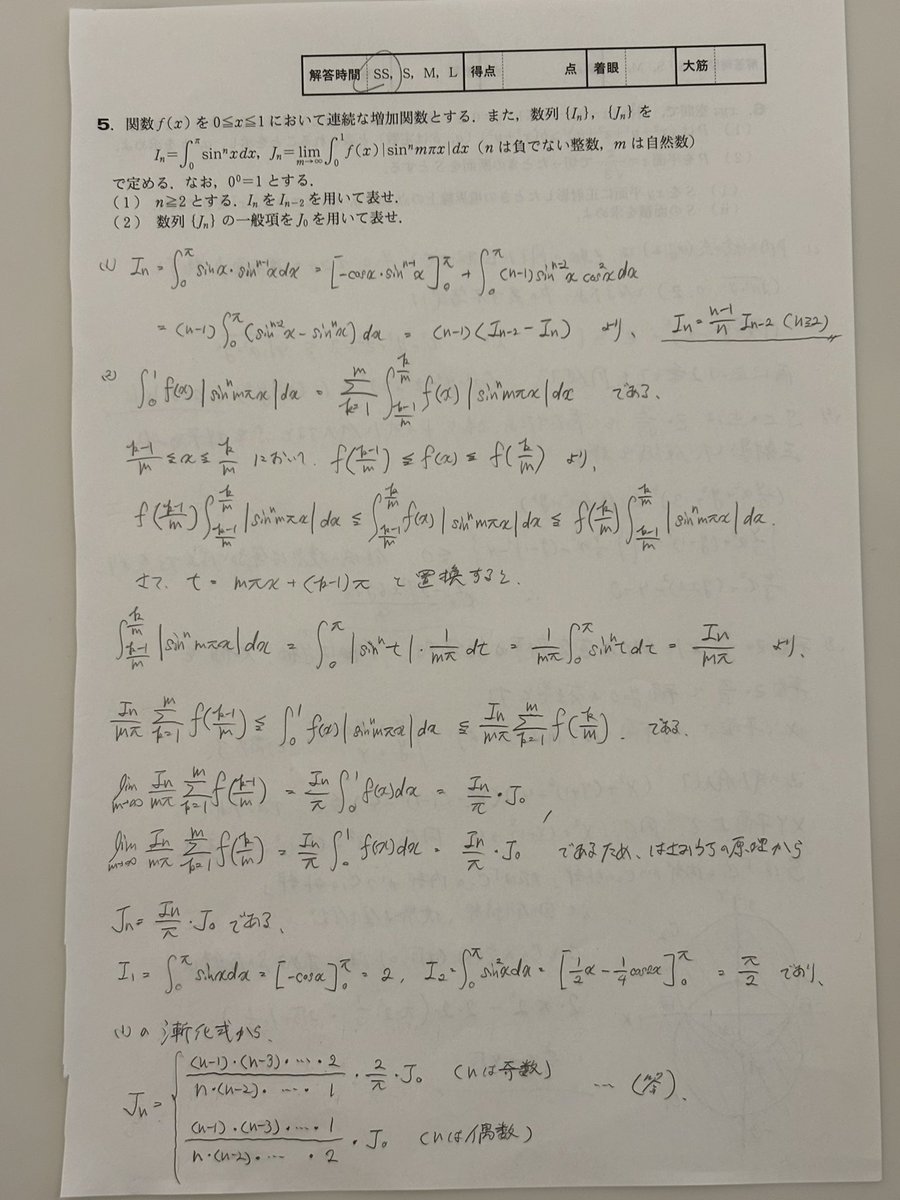 解答時間 SS, S, M, L 得点 点 着眼 大筋
5. 関数 f(x) を 0≦x≦1 において連続な増加関数とする. また, 数列 {I_n}, {J_n} を
I_n=∫_0^π sin^n xdx, J_n=lim_{m→∞}∫_0^1 f(x)|sin^n mπx|dx (n は負でない整数, m は自然数)
で定める. なお, 0^0=1 とする.
(1) n≧2 とする. I_n を I_{n-2} を用いて表せ.
(2) 数列 {J_n} の一般項を J_0 を用いて表せ.
(1) I_n = ∫_0^π sinx・sin^{n-1}x dx = [-cosx・sin^{n-1}x]_0^π + ∫_0^π (n-1)sin^{n-2}x cos^2x dx
= (n-1)∫_0^π (sin^{n-2}x - sin^n x) dx = (n-1)(I_{n-2} - I_n) より、 I_n = \frac{n-1}{n} I_{n-2} (n≧2)
(2) ∫_0^1 f(x)|sin^n mπx|dx = Σ_{k=1}^m ∫_{\frac{k-1}{m}}^{\frac{k}{m}} f(x)|sin^n mπx|dx である、
\frac{k-1}{m} ≦ x ≦ \frac{k}{m} において、 f(\frac{k-1}{m}) ≦ f(x) ≦ f(\frac{k}{m}) より、
f(\frac{k-1}{m})∫_{\frac{k-1}{m}}^{\frac{k}{m}} |sin^n mπx|dx ≦ ∫_{\frac{k-1}{m}}^{\frac{k}{m}} f(x)|sin^n mπx|dx ≦ f(\frac{k}{m})∫_{\frac{k-1}{m}}^{\frac{k}{m}} |sin^n mπx|dx.
さて、 t = mπx + (k-1)π と置換すると、
∫_{\frac{k-1}{m}}^{\frac{k}{m}} |sin^n mπx|dx = ∫_0^π |sin^n t|・\frac{1}{mπ} dt = \frac{1}{mπ}∫_0^π sin^n t dt = \frac{I_n}{mπ} より、
\frac{I_n}{mπ} Σ_{k=1}^m f(\frac{k-1}{m}) ≦ ∫_0^1 f(x)|sin^n mπx|dx ≦ \frac{I_n}{mπ} Σ_{k=1}^m f(\frac{k}{m}). である.
lim_{m→∞} \frac{I_n}{mπ} Σ_{k=1}^m f(\frac{k-1}{m}) = \frac{I_n}{π}∫_0^1 f(x)dx = \frac{I_n}{π}・J_0,
lim_{m→∞} \frac{I_n}{mπ} Σ_{k=1}^m f(\frac{k}{m}) = \frac{I_n}{π}∫_0^1 f(x)dx = \frac{I_n}{π}・J_0 であるため、はさみうちの原理から
J_n = \frac{I_n}{π}・J_0 である、
I_1 = ∫_0^π sinxdx = [-cosx]_0^π = 2, I_2 = ∫_0^π sin^2xdx = [\frac{1}{2}x - \frac{1}{4}cos2x]_0^π = \frac{π}{2} であり、
(1) の漸化式から、
J_n = { \frac{(n-1)・(n-3)・…・2}{n・(n-2)・…・1}・\frac{2}{π}・J_0 (nは奇数) … (答).
\frac{(n-1)・(n-3)・…・1}{n・(n-2)・…・2}・J_0 (nは偶数)